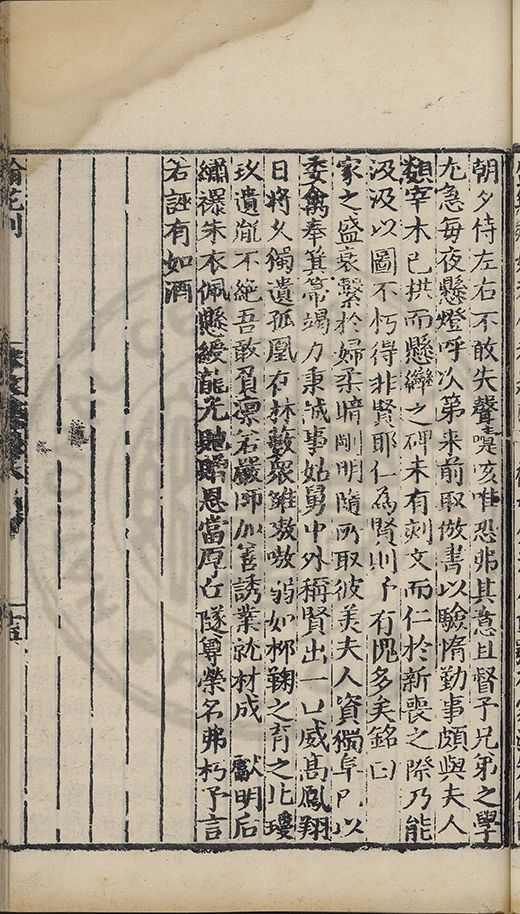 朝夕侍左右不敢失聲嘆咳唯恐弗其意且督予兄弟之學
尤急每夜懸燈呼次第來前取倣書以驗隋勤事頗與夫人
類宰木已拱而懸繂之碑未有刻文而仁於新喪之際乃能
汲汲以圖不朽得非賢耶仁為賢則予有愧多矣銘曰
家之盛衰繫於婦柔暗剛明隨所取彼美夫人資獨阜凡以
委禽奉箕箒竭力秉誠事姑舅中外稱賢出一口威高鳳翔
日將久獨遺孤凰在林藪眾雛嗷嗷弱如栁鞠之育之比瓊
玖遺胤不絕吾敢負凜若嚴師加善誘業就材成 獻明后
繡襮朱衣佩懸綬寵光貤贈恩當厚丘隧尊榮名弗朽予言
若誣有如酒
十五